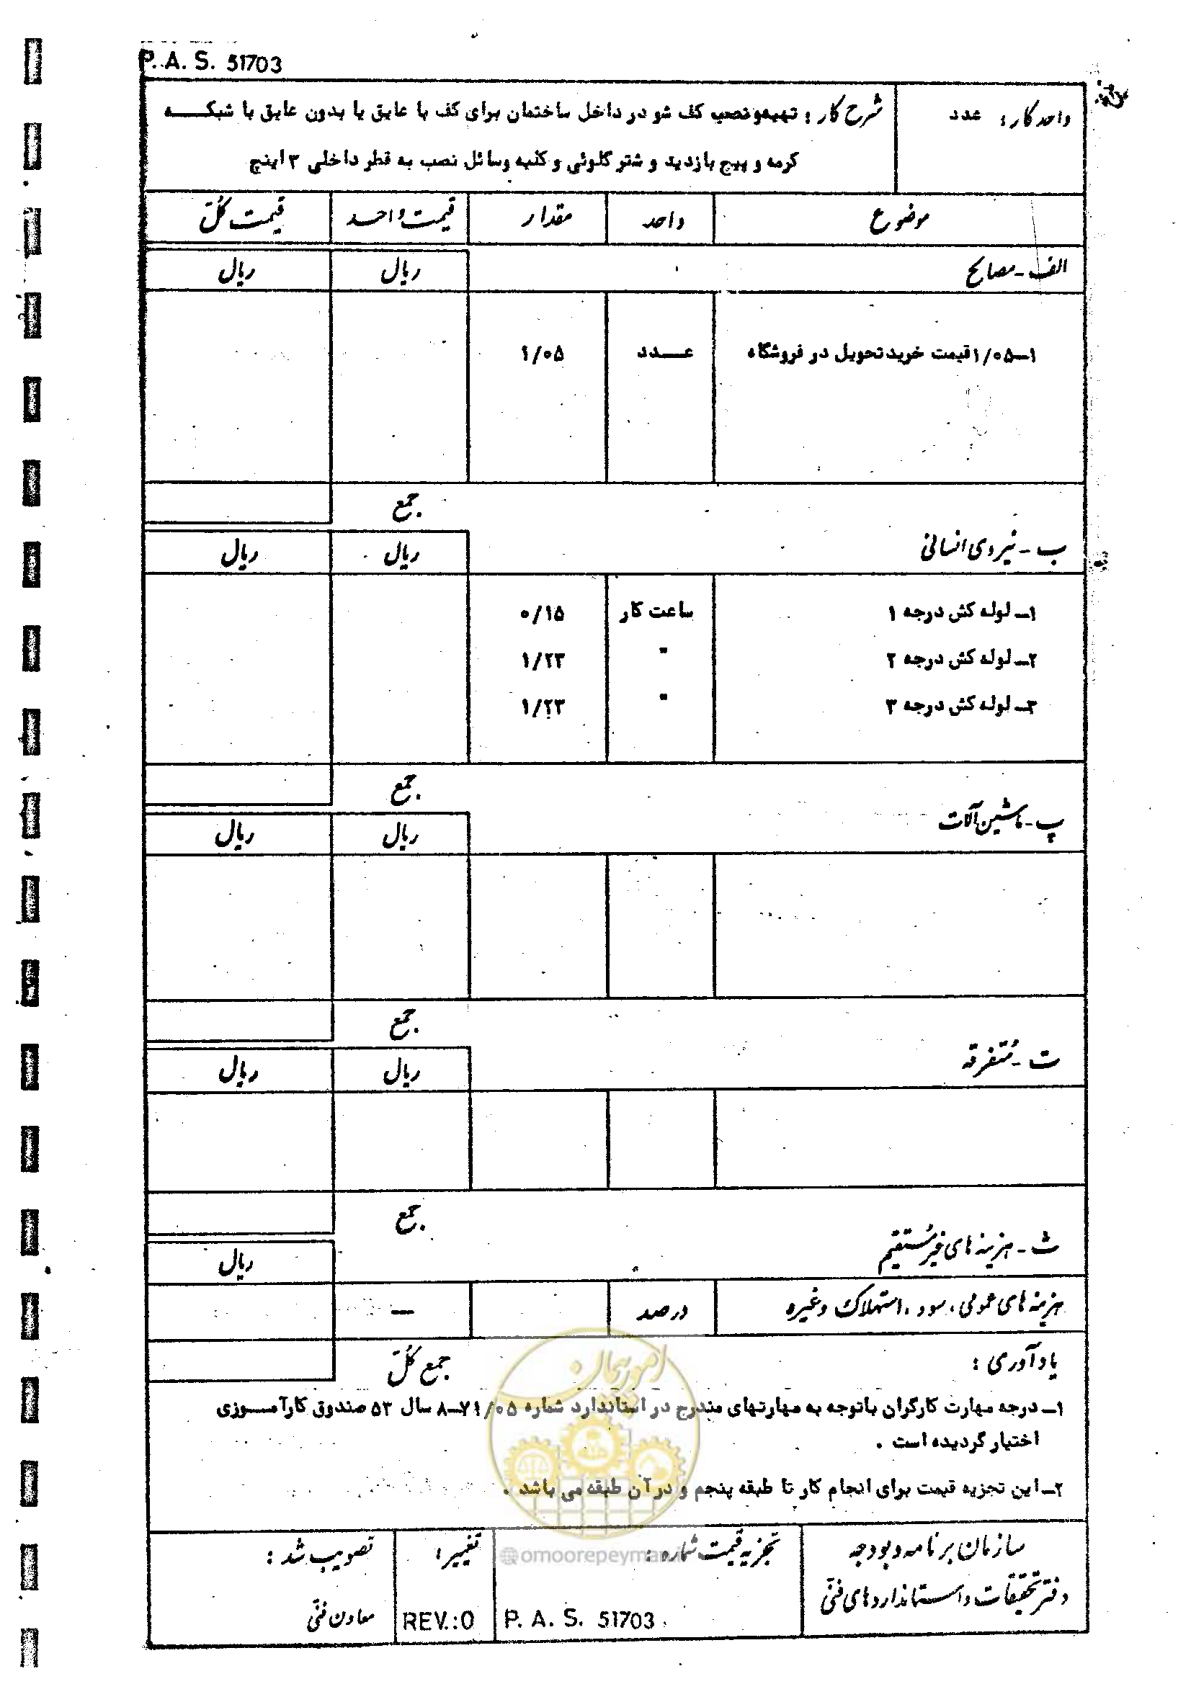 P. A. S. 51703
واحد کار: عدد
شرح کار: تهیه و نصب کف شو در داخل ساختمان برای کف با عایق یا بدون عایق با شبکه
کرمه و پیچ بازدید و شتر گلوئی و کلیه وسائل نصب به قطر داخلی ۳ اینچ
موضوع واحد مقدار قیمت واحد قیمت کل
الف - مصالح ریال ریال
۱ـ ۱/۰۵ قیمت خرید تحویل در فروشگاه عدد ۱/۰۵
جمع
ب - نیروی انسانی ریال ریال
۱ـ لوله کش درجه ۱ ساعت کار ۰/۱۵
۲ـ لوله کش درجه ۲ " ۱/۲۳
۳ـ لوله کش درجه ۳ " ۱/۲۳
جمع
پ - ماشین آلات ریال ریال
جمع
ت - متفرقه ریال ریال
جمع
ث - هزینه های غیرمستقیم ریال
هزینه های عمومی، سود، استهلاک وغیره درصد —
جمع کل
یادآوری:
۱ـ درجه مهارت کارگران باتوجه به مهارتهای مندرج در استاندارد شماره ۱/۰۵ـ۷ـ۸ سال ۵۳ صندوق کارآموزی
اختیار گردیده است .
۲ـ این تجزیه قیمت برای انجام کار تا طبقه پنجم و در آن طبقه می باشد .
امور پیمان
سازمان برنامه و بودجه
دفتر تحقیقات و استانداردهای فنی
تجزیه قیمت شماره:
P. A. S. 51703
تغییر:
REV.:0
تصویب شد:
معاون فنی